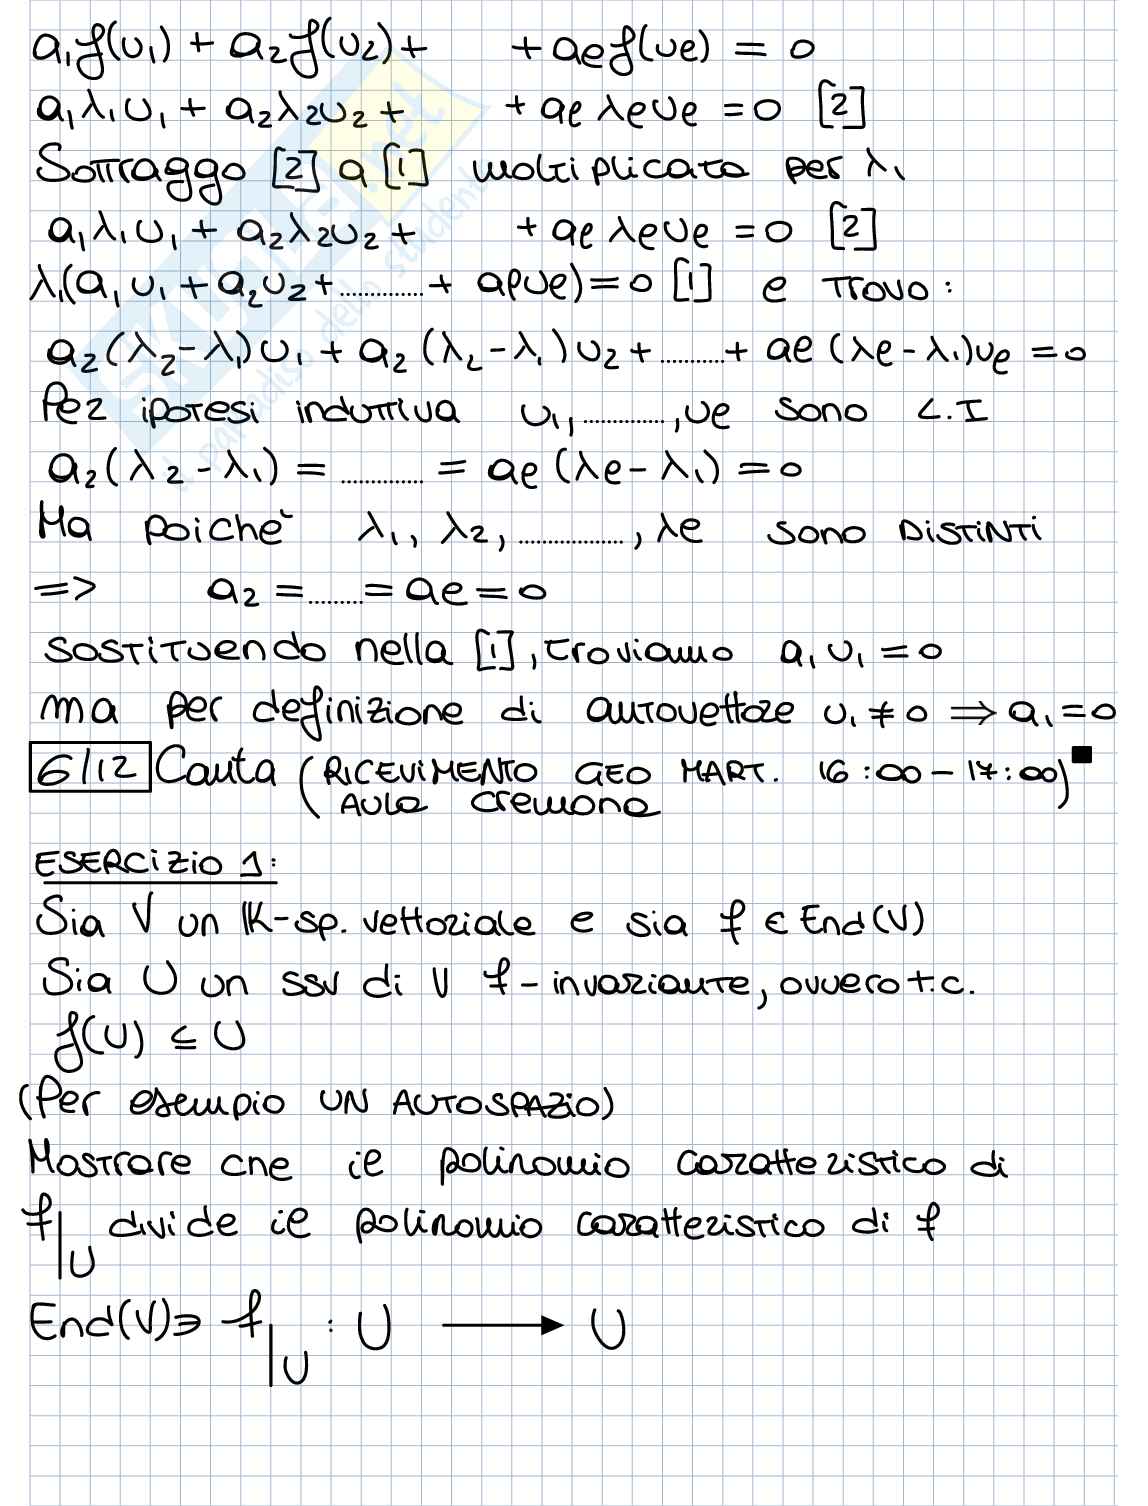 a₁f(v₁) + a₂f(v₂) + + aℓf(vℓ) = 0
a₁λ₁v₁ + a₂λ₂v₂ + + aℓ λℓvℓ = 0 [2]
Sottraggo [2] a [1] moltiplicata per λ₁
a₁λ₁v₁ + a₂λ₂v₂ + + aℓ λℓvℓ = 0 [2]
λ₁(a₁v₁ + a₂v₂ + ............ + aℓvℓ) = 0 [1] e trovo:
a₂(λ₂-λ₁)v₁ + a₂(λ₂-λ₁)v₂ + ......... + aℓ(λℓ-λ₁)vℓ = 0
Per ipotesi induttiva v₁, ............, vℓ sono L.I
a₂(λ₂-λ₁) = ............ = aℓ(λℓ-λ₁) = 0
Ma poichè λ₁, λ₂, ................, λℓ sono DISTINTI
=> a₂ = ........ = aℓ = 0
sostituendo nella [1], troviamo a₁v₁ = 0
ma per definizione di autovettore v₁ ≠ 0 ⇒ a₁ = 0
6/12 Cauta (RICEVIMENTO GEO MART. 16:00 - 17:00) ■
AULA Cremona
ESERCIZIO 1:
Sia V un K-sp. vettoriale e sia f ∈ End(V)
Sia U un ssv di V f-invariante, ovvero t.c.
f(U) ⊆ U
(Per esempio UN AUTOSPAZIO)
Mostrare che il polinomio caratteristico di
f|U divide il polinomio caratteristico di f
End(V)∋ f|U : U ⟶ U
SKUOLA.net
il paradiso dello studente